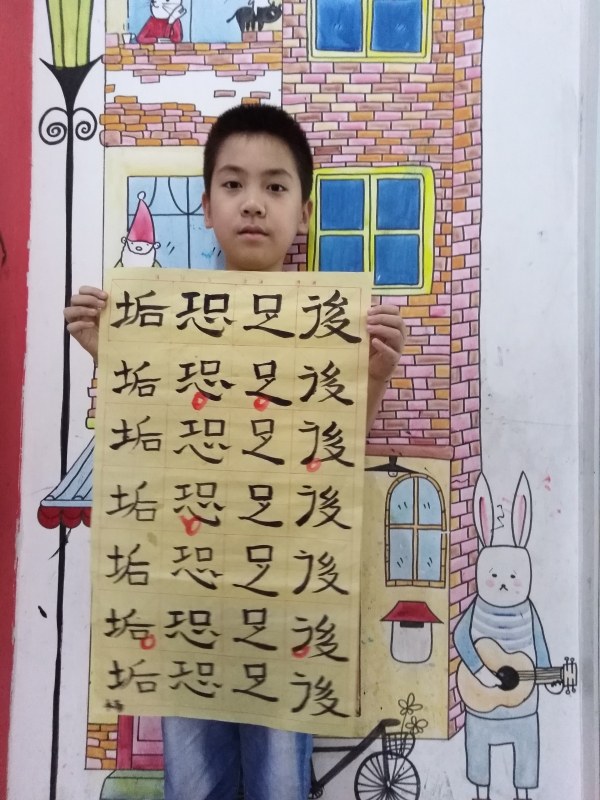 後後後後後後後
足足足足足足足
恐恐恐恐恐恐恐
垢垢垢垢垢垢垢